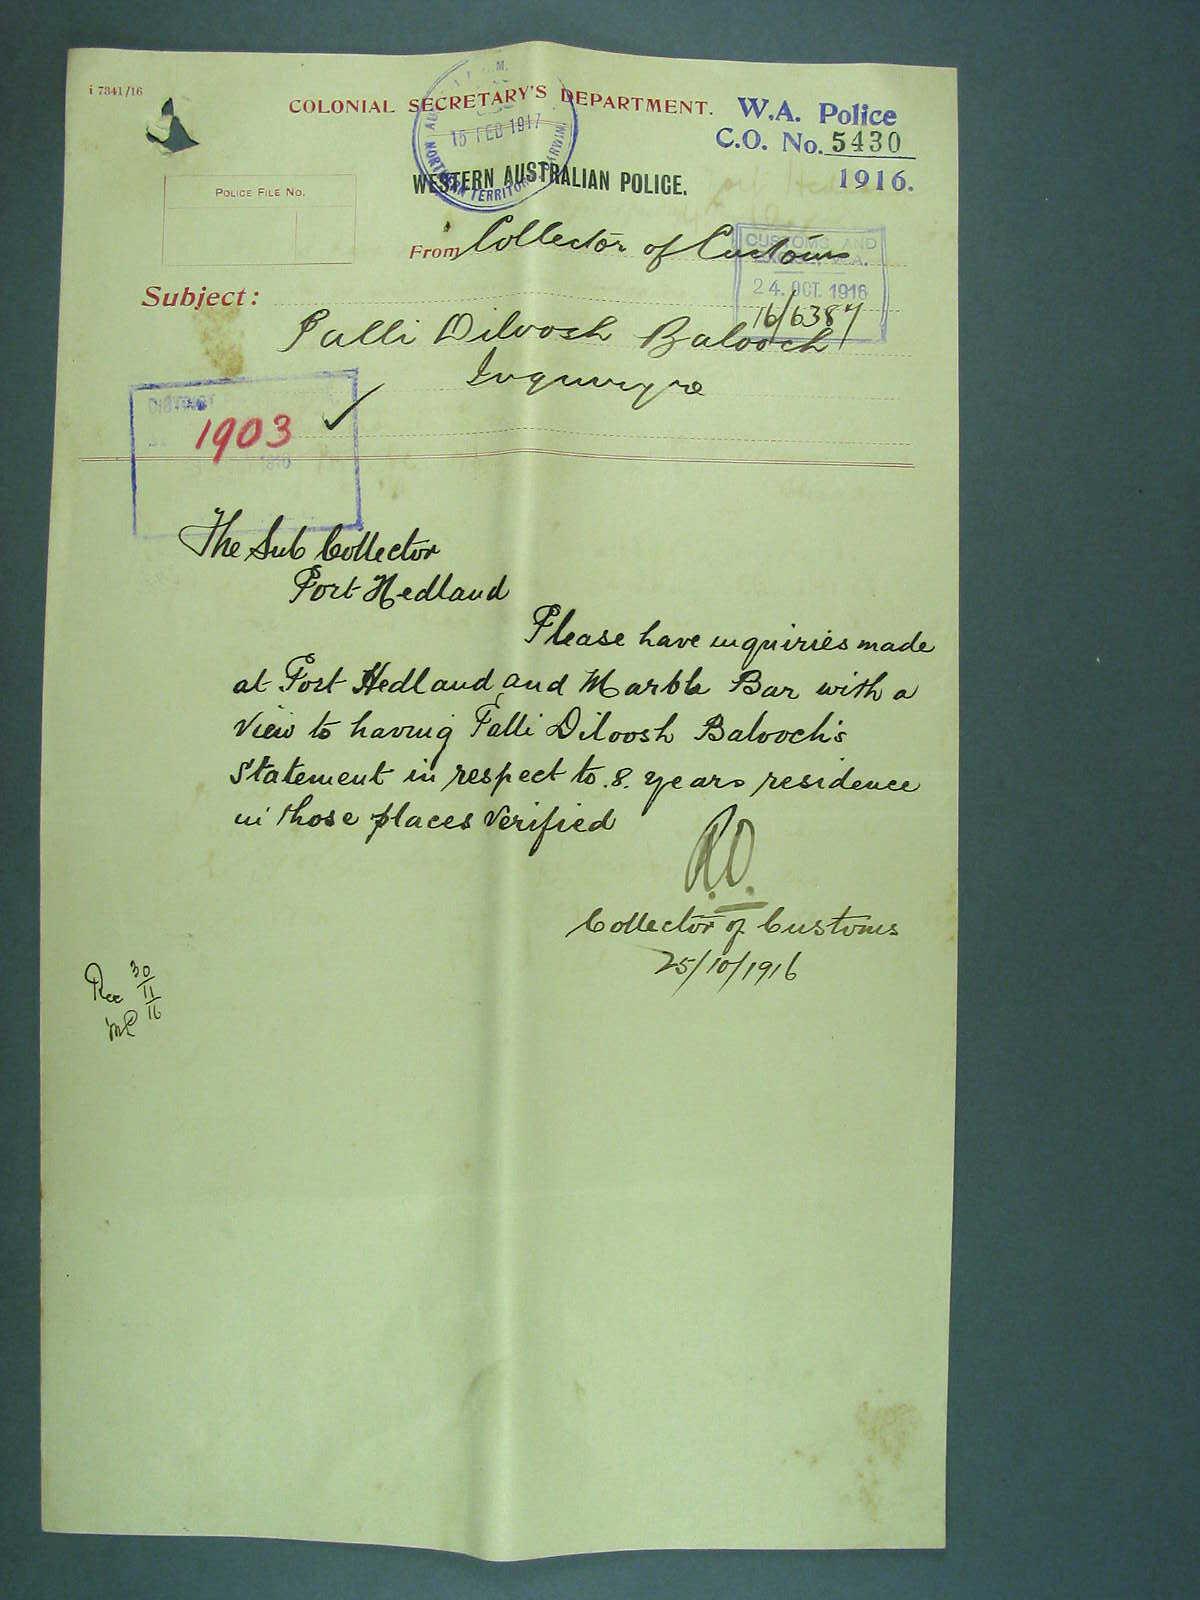 i 7341/16
COLONIAL SECRETARY'S DEPARTMENT.
W.A. Police
C.O. No. 5430
1916.
15 FEB 1917
NORTHERN TERRITORY
WESTERN AUSTRALIAN POLICE.
POLICE FILE No.
From Collector of Customs
CUSTOMS AND
24. OCT. 1916
16/6387
Subject:
Palli Diloosh Balooch
DISTRICT
1903
The Sub Collector
Port Hedland
Please have inquiries made
at Port Hedland and Marble Bar with a
View to having Palli Diloosh Balooch's
Statement in respect to .8. years residence
in those places Verified
Collector of Customs
25/10/1916
Rec 30
11
16